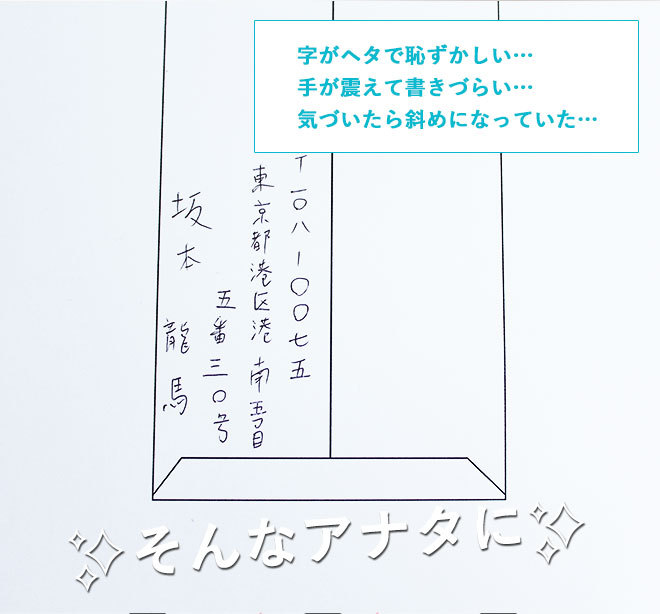 字がヘタで恥ずかしい…
手が震えて書きづらい…
気づいたら斜めになっていた…
〒一〇八-〇〇七五
東京都港区港南五丁目
五番三〇号
坂本 龍馬
そんなアナタに